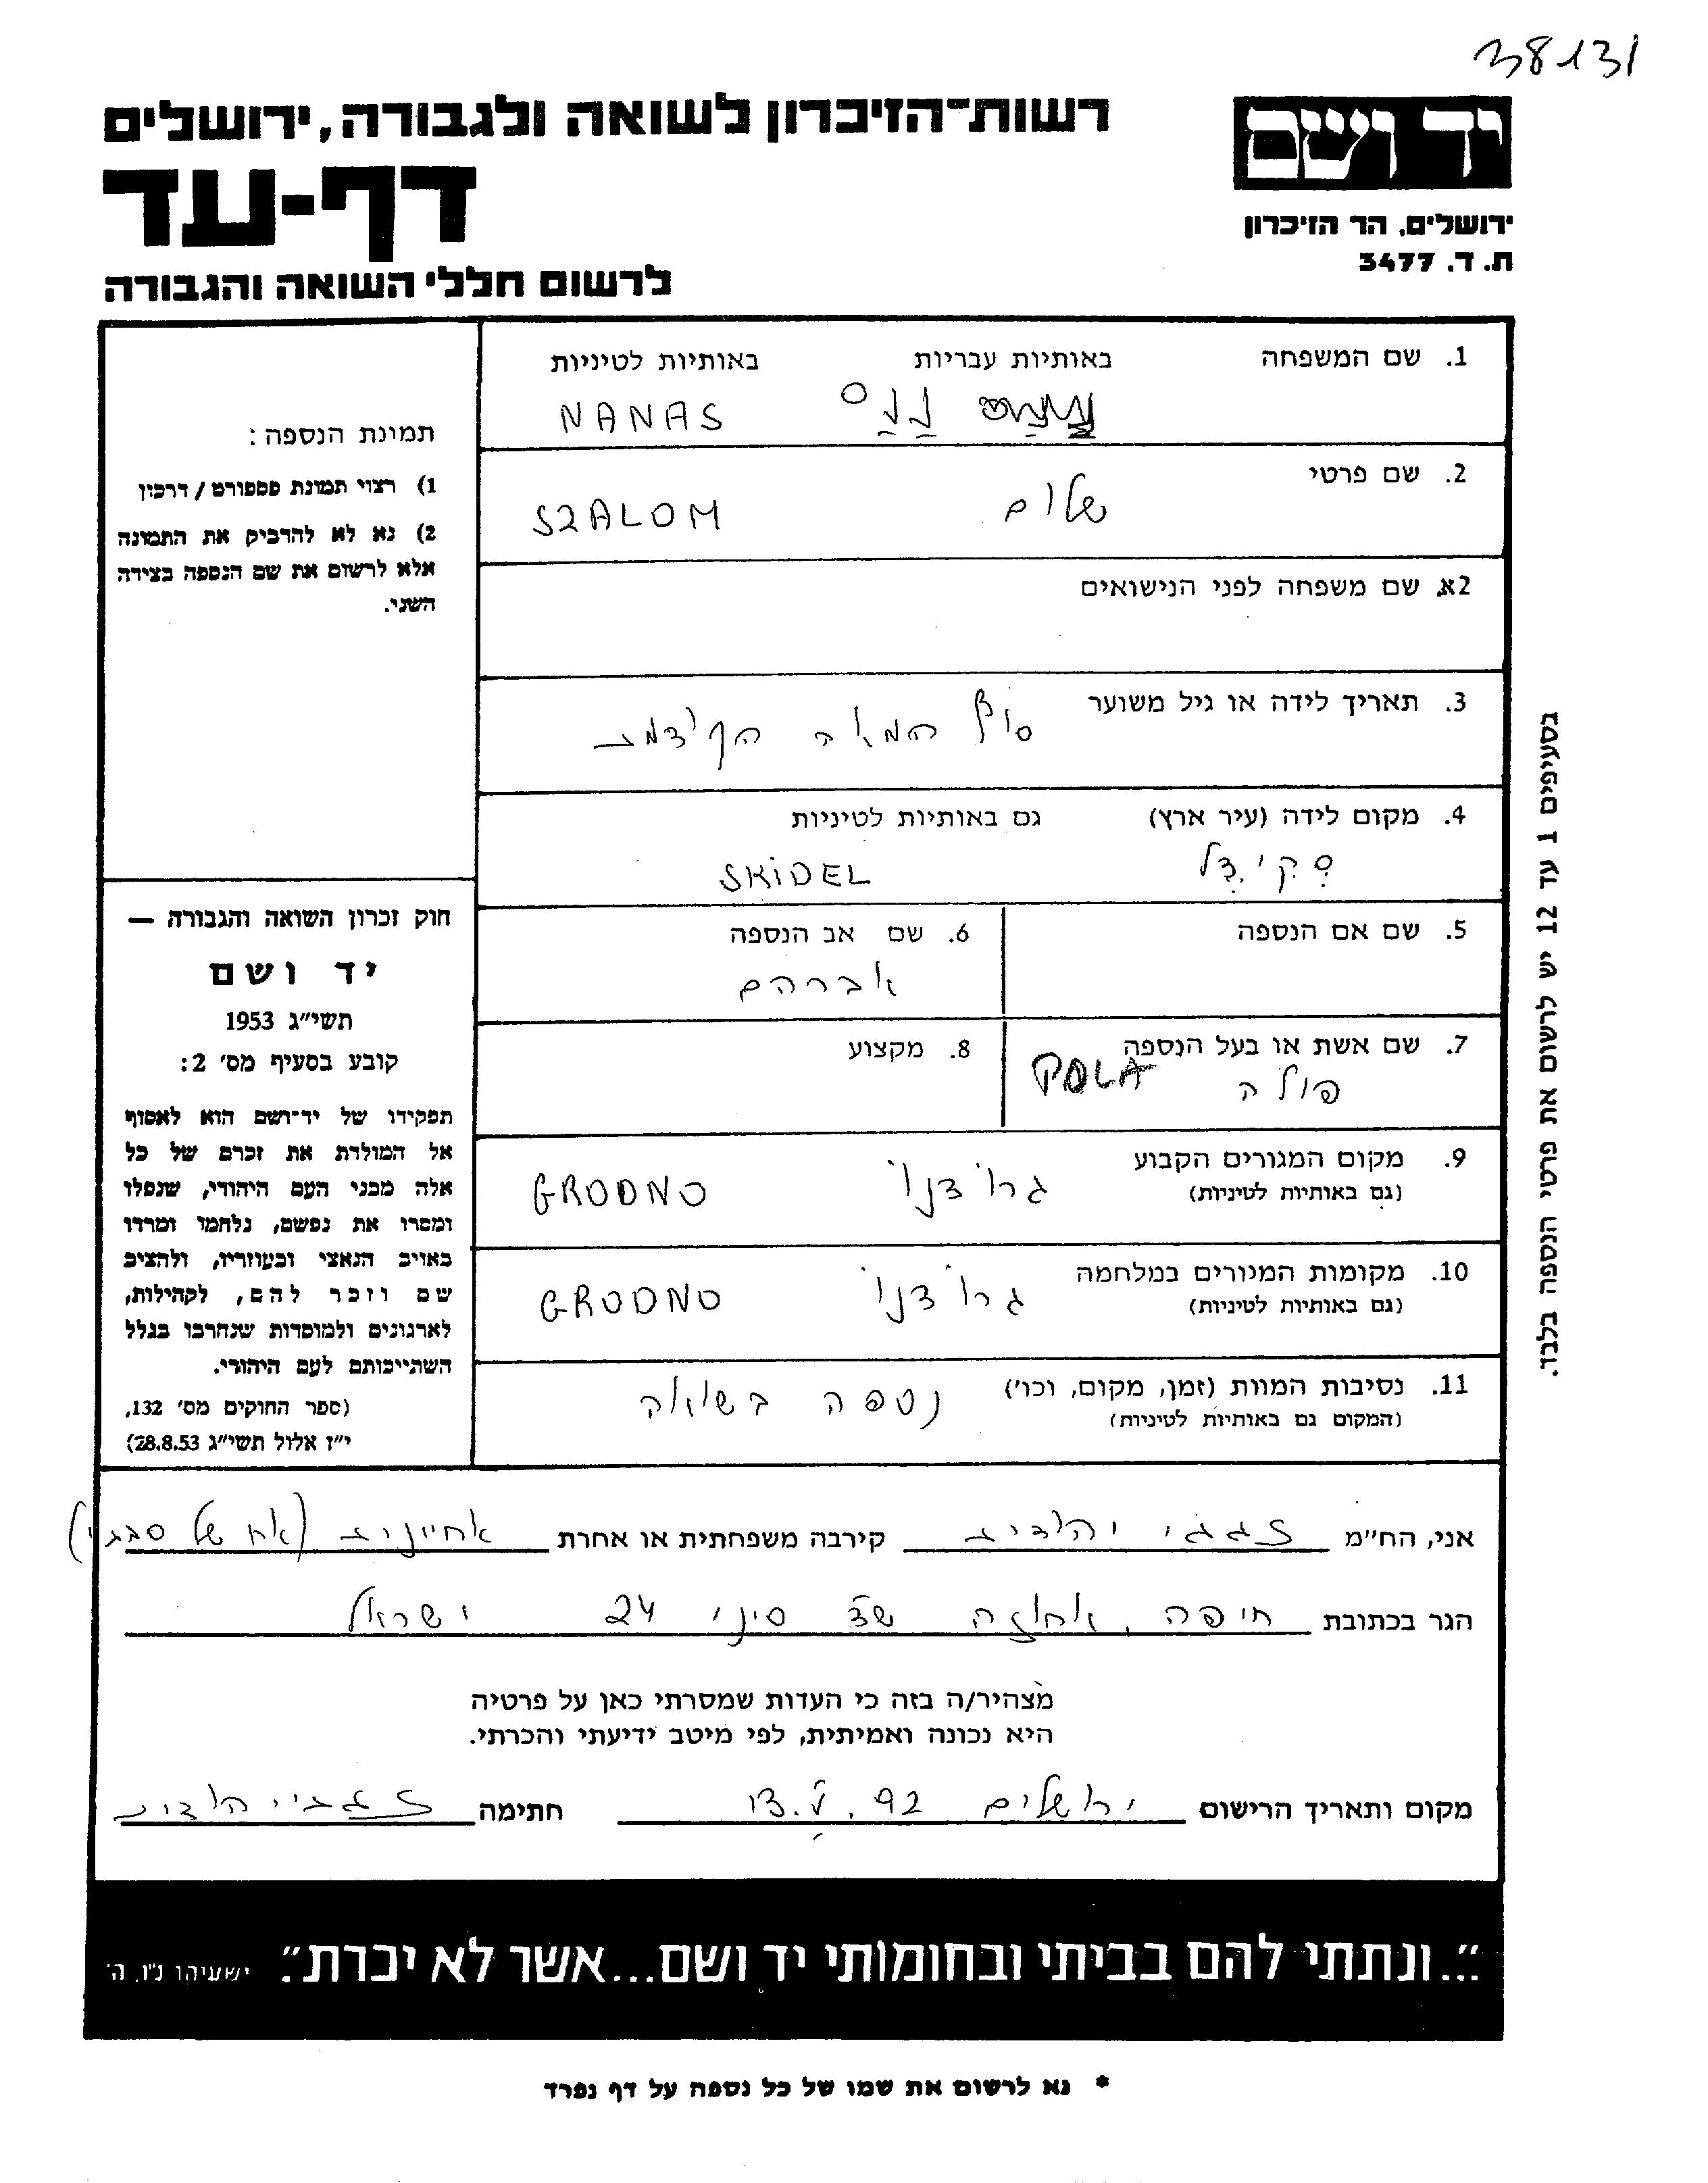 38131
יד ושם
ירושלים, הר הזיכרון
ת. ד. 3477
רשות-הזיכרון לשואה ולגבורה, ירושלים
דף-עד
לרשום חללי השואה והגבורה
1. שם המשפחה באותיות עבריות באותיות לטיניות
ננס NANAS
2. שם פרטי
שלום SZALOM
2א. שם משפחה לפני הנישואים
3. תאריך לידה או גיל משוער
סוף המאה הקודמת
4. מקום לידה (עיר ארץ) גם באותיות לטיניות
סקידל SKIDEL
5. שם אם הנספה
6. שם אב הנספה
אברהם
7. שם אשת או בעל הנספה
פולה POLA
8. מקצוע
9. מקום המגורים הקבוע
(גם באותיות לטיניות)
גרודנו GRODNO
10. מקומות המגורים במלחמה
(גם באותיות לטיניות)
גרודנו GRODNO
11. נסיבות המוות (זמן, מקום, וכו')
(המקום גם באותיות לטיניות)
נספה בשואה
תמונת הנספה:
1) רצוי תמונת פספורט / דרכון
2) נא לא להדביק את התמונה
אלא לרשום את שם הנספה בצידה
השני.
חוק זכרון השואה והגבורה —
יד ושם
תשי"ג 1953
קובע בסעיף מס' 2:
תפקידו של יד-ושם הוא לאסוף
אל המולדת את זכרם של כל
אלה מבני העם היהודי, שנפלו
ומסרו את נפשם, נלחמו ומרדו
באויב הנאצי ובעוזריו, ולהציב
שם וזכר להם, לקהילות,
לארגונים ולמוסדות שנחרבו בגלל
השתייכותם לעם היהודי.
(ספר החוקים מס' 132,
י"ז אלול תשי"ג 28.8.53)
בסעיפים 1 עד 12 יש לרשום את פרטי הנספה בלבד.
אני, הח"מ יהודית קירבה משפחתית או אחרת אחיינית (אח של סבתי)
הגר בכתובת חיפה, אחוזה שד סיני 24 ישראל
מצהיר/ה בזה כי העדות שמסרתי כאן על פרטיה
היא נכונה ואמיתית, לפי מיטב ידיעתי והכרתי.
מקום ותאריך הרישום ירושלים 13.V.92 חתימה
"...ונתתי להם בביתי ובחומותי יד ושם...אשר לא יכרת". ישעיהו נ"ו, ה'
* נא לרשום את שמו של כל נספה על דף נפרד